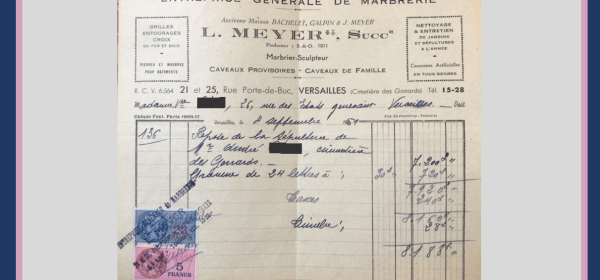 ENTREPRISE GÉNÉRALE DE MARBRERIE
Ancienne Maison DACHELET, GALPIN & J. MEYER
L. MEYER, Succr
Marbrier-Sculpteur
CAVEAUX PROVISOIRES - CAVEAUX DE FAMILLE
GRILLES
ENTOURAGES
CROIX
EN FER ET BOIS
PIERRES ET MARBRES
POUR BATIMENTS
NETTOYAGE
& ENTRETIEN
DE JARDINS
ET SÉPULTURES
A L'ANNÉE
Couronnes Artificielles
EN TOUS GENRES
R. C. V. 6.564 21 et 25, Rue Porte-de-Buc, VERSAILLES (Cimetière des Gonards) Tél. 15-28
Madame Vve 26, rue des Etats généraux Versailles. Doit
Versailles, le 4 septembre 1951
136 Repose de la sépulture de
Mr André cimetière
des Gonards. 7.200
Gravure de 24 lettres à 30 720
7.920
Taxes 240
8.160
Timbre 28
8.188
5
FRANCS